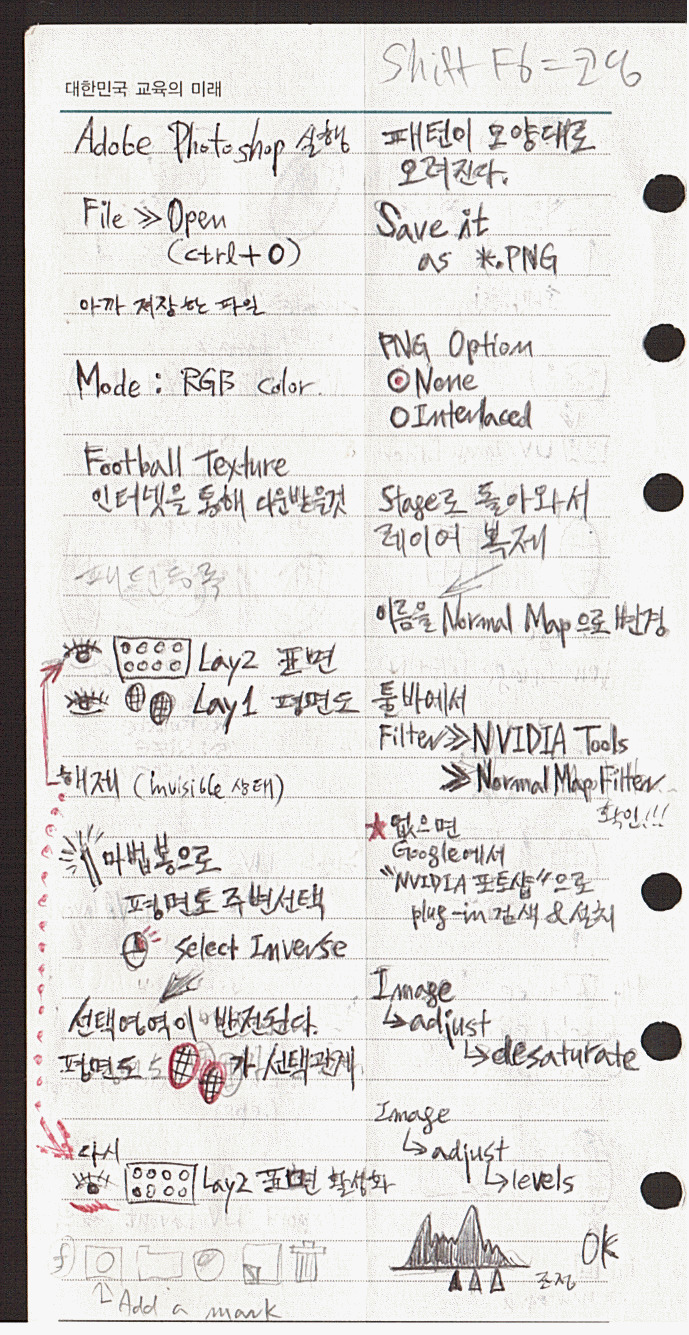 대한민국 교육의 미래
Shift F6 =
Adobe Photoshop 실행
File ≫ Open
(ctrl+O)
아까 저장한 파일
Mode : RGB color.
Football Texture
인터넷을 통해 다운받을것
패턴등록
Lay2 표면
Lay1 평면도
해제 (invisible 상태)
마법봉으로
평면도 주변선택
select Inverse
선택영역이 반전된다.
평면도 가 선택관계
다시
Lay2 표면 활성화
Add a mark
패턴이 모양대로
오려진다.
Save it
as *.PNG
PNG Option
None
Interlaced
Stage로 돌아와서
레이어 복제
이름을 Normal Map으로 변경
툴바에서
Filter≫NVIDIA Tools
≫Normal Map Filter
확인!!!
★없으면
Google에서
"NVIDIA 포토샵"으로
plug-in 검색 & 설치
Image
↳adjust
↳desaturate
Image
↳adjust
↳levels
OK
조정